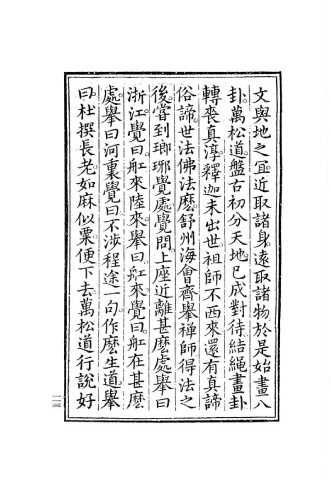 文與地之宜近取諸身遠取諸物於是始畫八
卦萬松道盤古初分天地已成對待結繩畫卦
轉喪真淳釋迦未出世祖師不西來還有真諦
俗諦世法佛法麼舒州海會齊舉禪師得法之
後嘗到瑯琊覺處覺問上座近離甚麼處舉曰
浙江覺曰舡來陸來舉曰舡來覺曰舡在甚麼
處舉曰河裏覺曰不涉程途一句作麼生道舉
曰杜撰長老如麻似粟便下去萬松道行說好